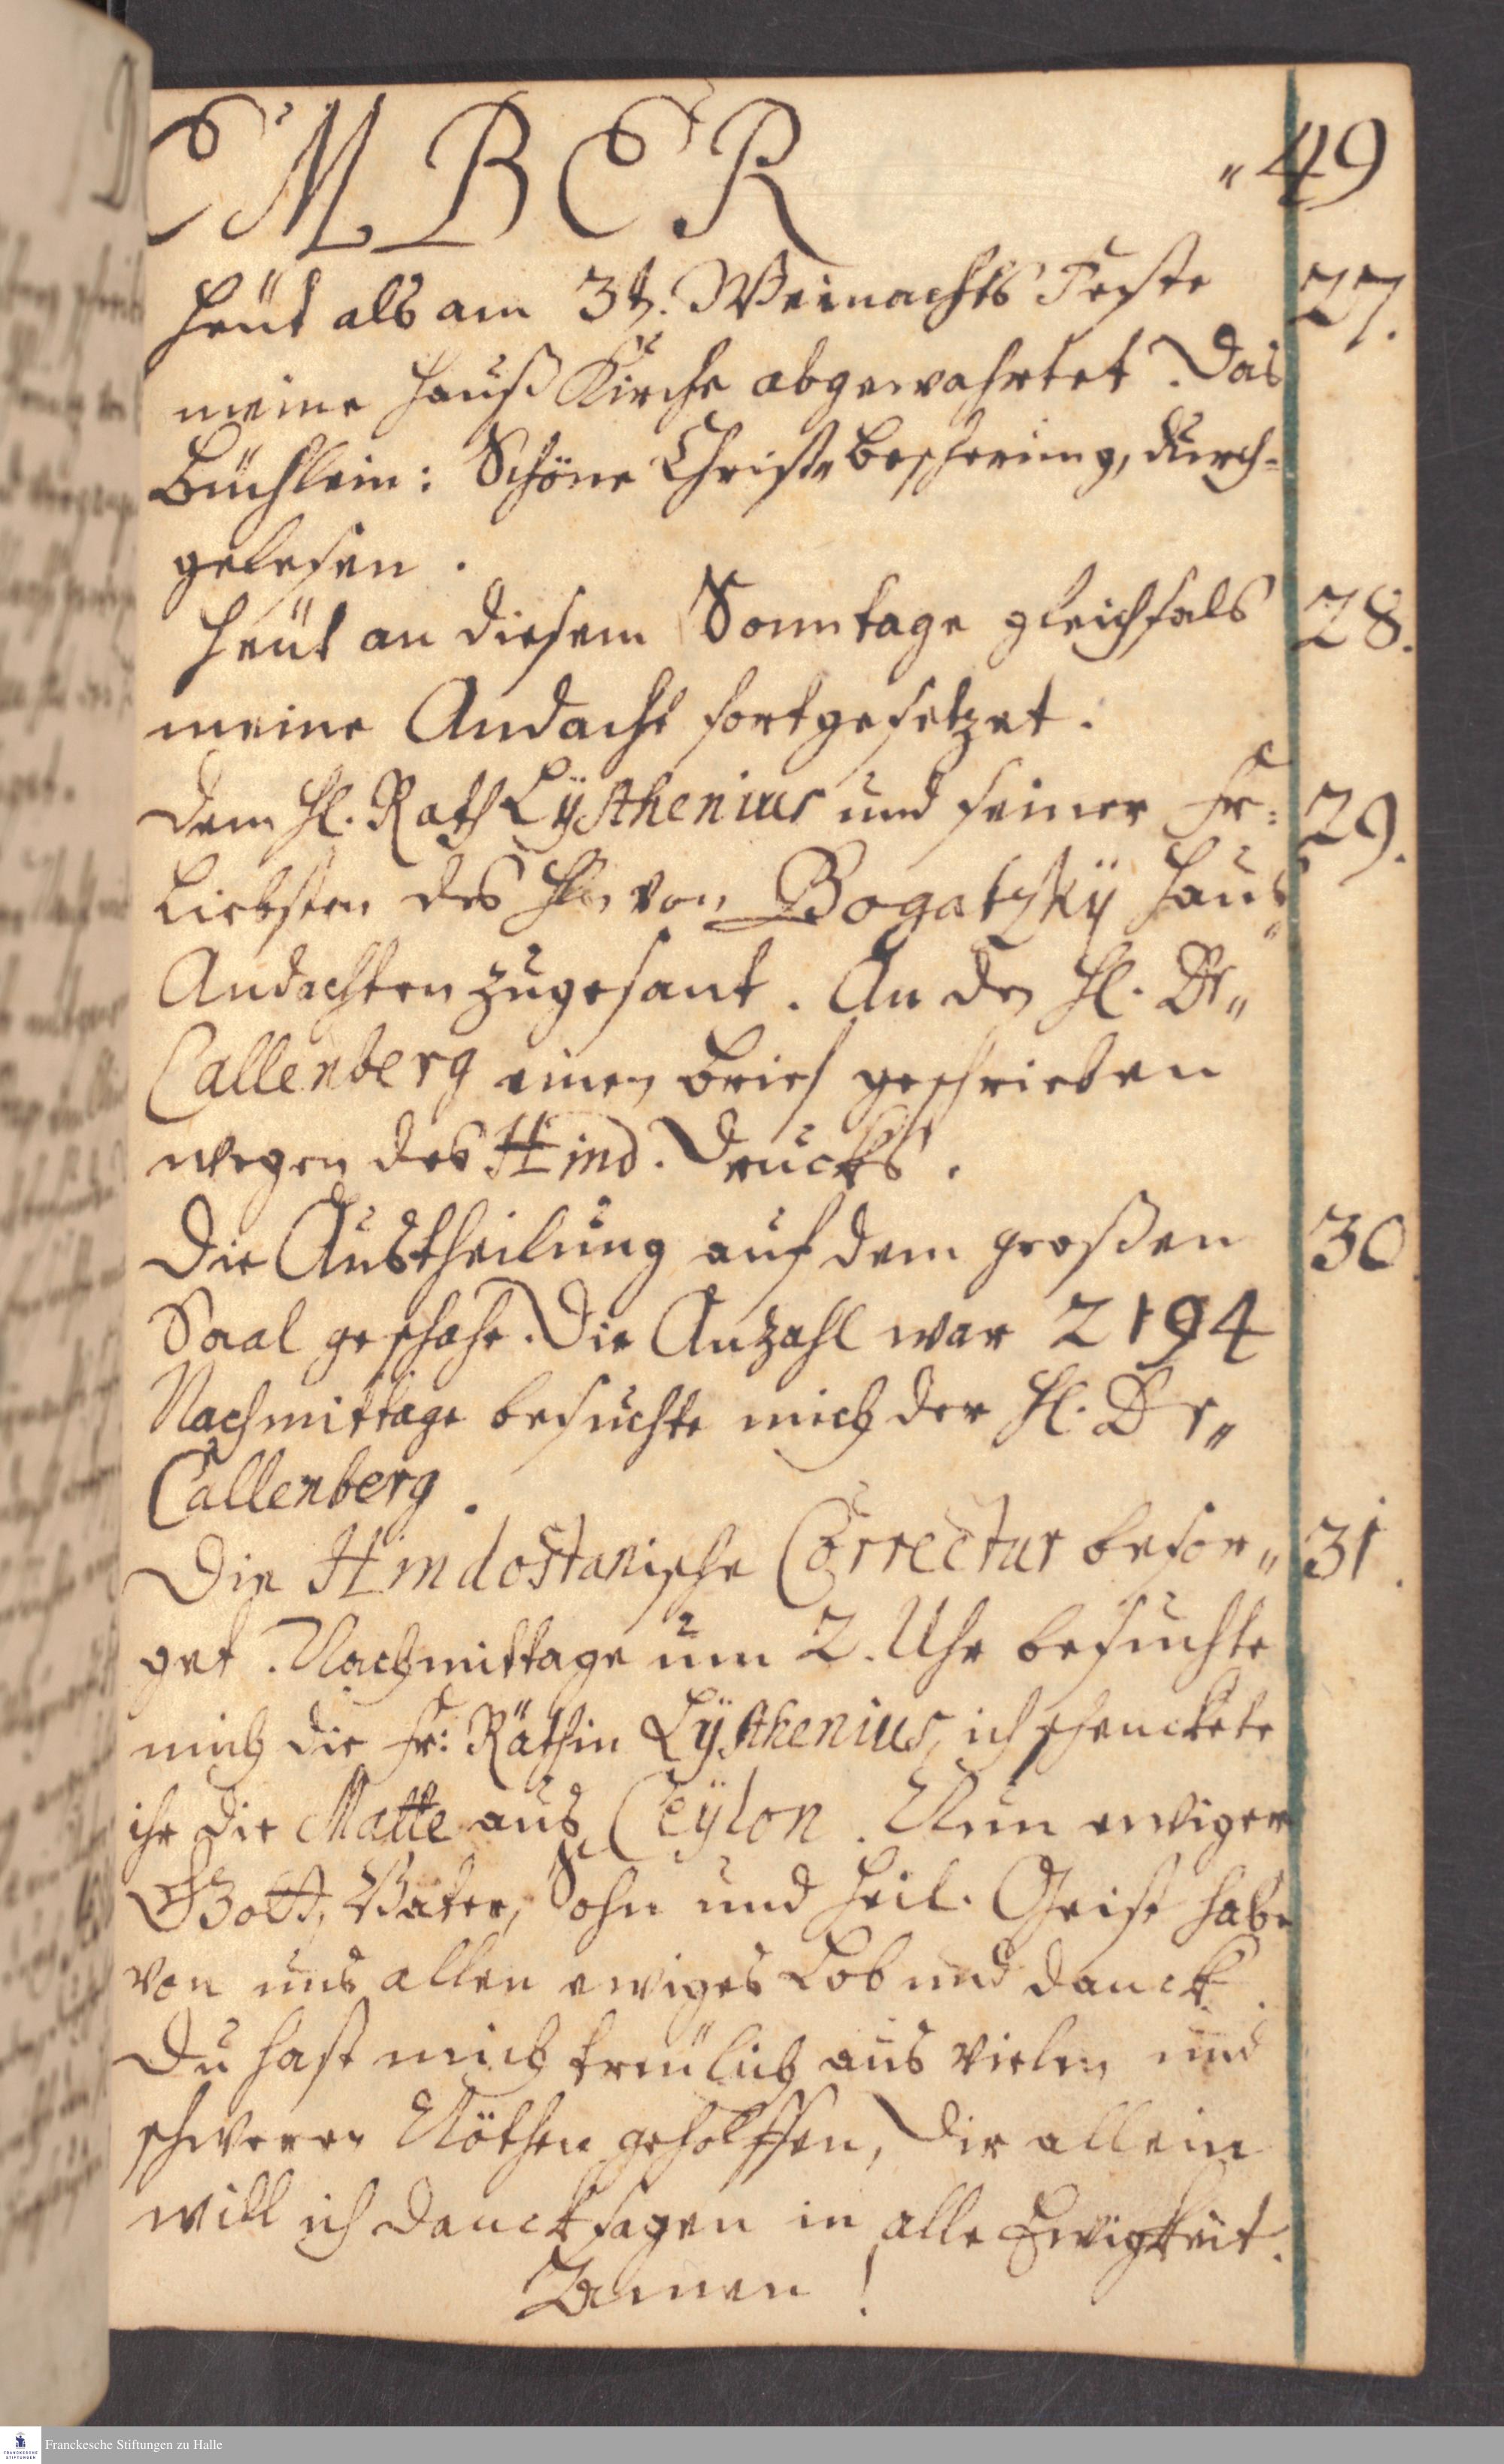 EMBER
" 49
Heüt als am 3t. Weinachts Feste 27.
meine Hauß Kirche abgewahrtet. Das
Büchlein: Schöne Christ„ Bescherung, durch-
gelesen.
Heüt an diesem Sonntage gleichfals 28.
meine Andacht fortgesetzet.
Dem H. Rath Lÿsthenius und seiner Fr: 29.
Liebsten des Hn von Bogatzkÿ Haus„
Andachten zugesant. An den H. Dr„
Callenberg einen Brief geschrieben
wegen des Hind. Drucks.
Die Austheilung auf dem großen 30.
Saal geschahe. Die Anzahl war 2194
Nachmittage besuchte mich der H. Dr„
Callenberg.
Die Hindostanische Correctur besor„ 31.
get. Nachmittage um 2. Uhr besuchte
mich die Fr: Räthin Lÿsthenius, ich schenckete
ihr die Matte aus Ceÿlon. Nun ewiger
Gott, Vater, Sohn und Heil. Geist habe
von uns allen ewiges Lob und Danck.
Du hast mich treülich aus vielen und
schweren Nöthen geholffen, Dir allein
will ich Danck sagen in alle Ewigkeit.
Amen!
FRANCKESCHE STIFTUNGEN
Franckesche Stiftungen zu Halle